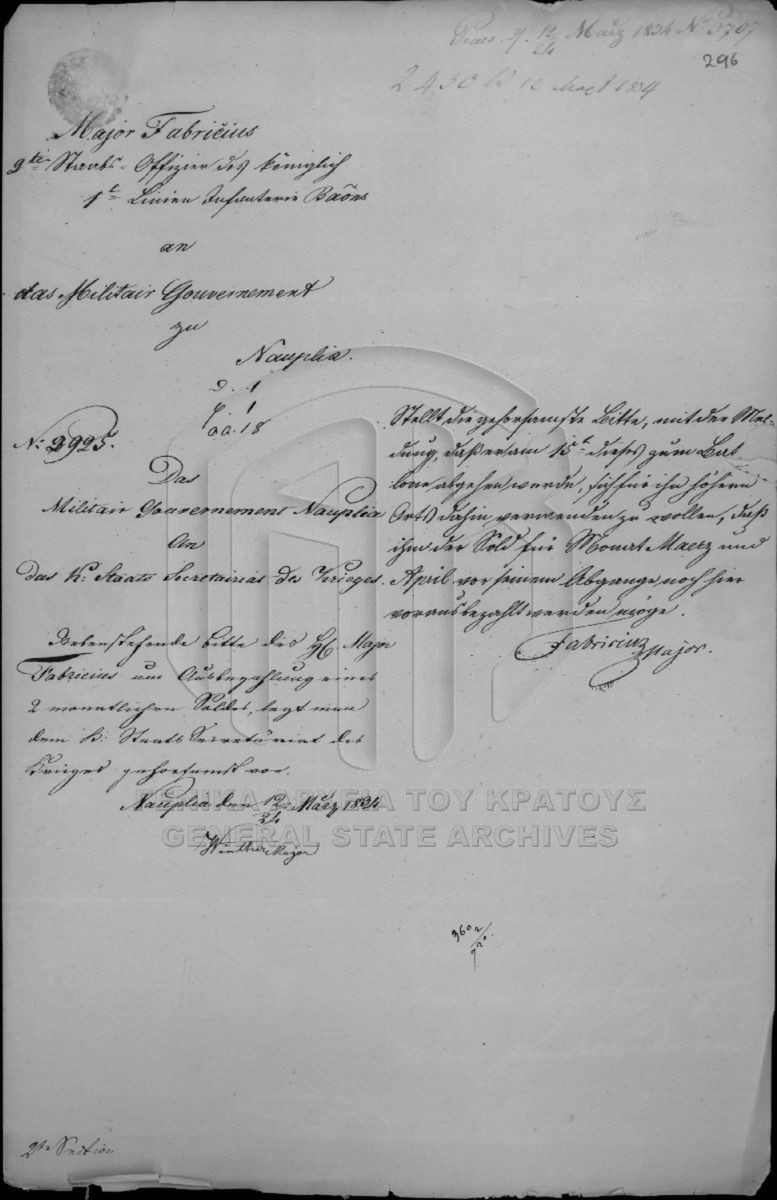 Praes. d. 12/24 März 1834 No 5707
296
2430 12 1834
Major Fabricius
2te Staabs-Offizier des königlich
1t Linien Infanterie Baõns
an
das Militair Gouvernement
zu
Nauplia.
No 2925.
Das
Militair Gouvernement Nauplia
An
Das K. Staats Secretairiat des Krieges.
Nebenstehende Bitte des H. Major
Fabricius um Ausbezahlung eines
2 monatlichen Soldes, legt man
dem K. Staats Secretariat des
Krieges gehorsamst vor.
Nauplia den 12/24 März 1834
Winther Major
Stellt die gehorsamste Bitte, mit der Mel-
dung, daß er am 15t dieses zum Bat
lone abgehen werde, sich für ihn höhern
Orts dahin verwenden zu wollen, daß
ihm der Sold für Monat Maerz und
April vor seinem Abgange noch hier
vorausbezahlt werden möge.
Fabricius
Major.
2te Section
ΓΕΝΙΚΑ ΑΡΧΕΙΑ ΤΟΥ ΚΡΑΤΟΥΣ
GENERAL STATE ARCHIVES